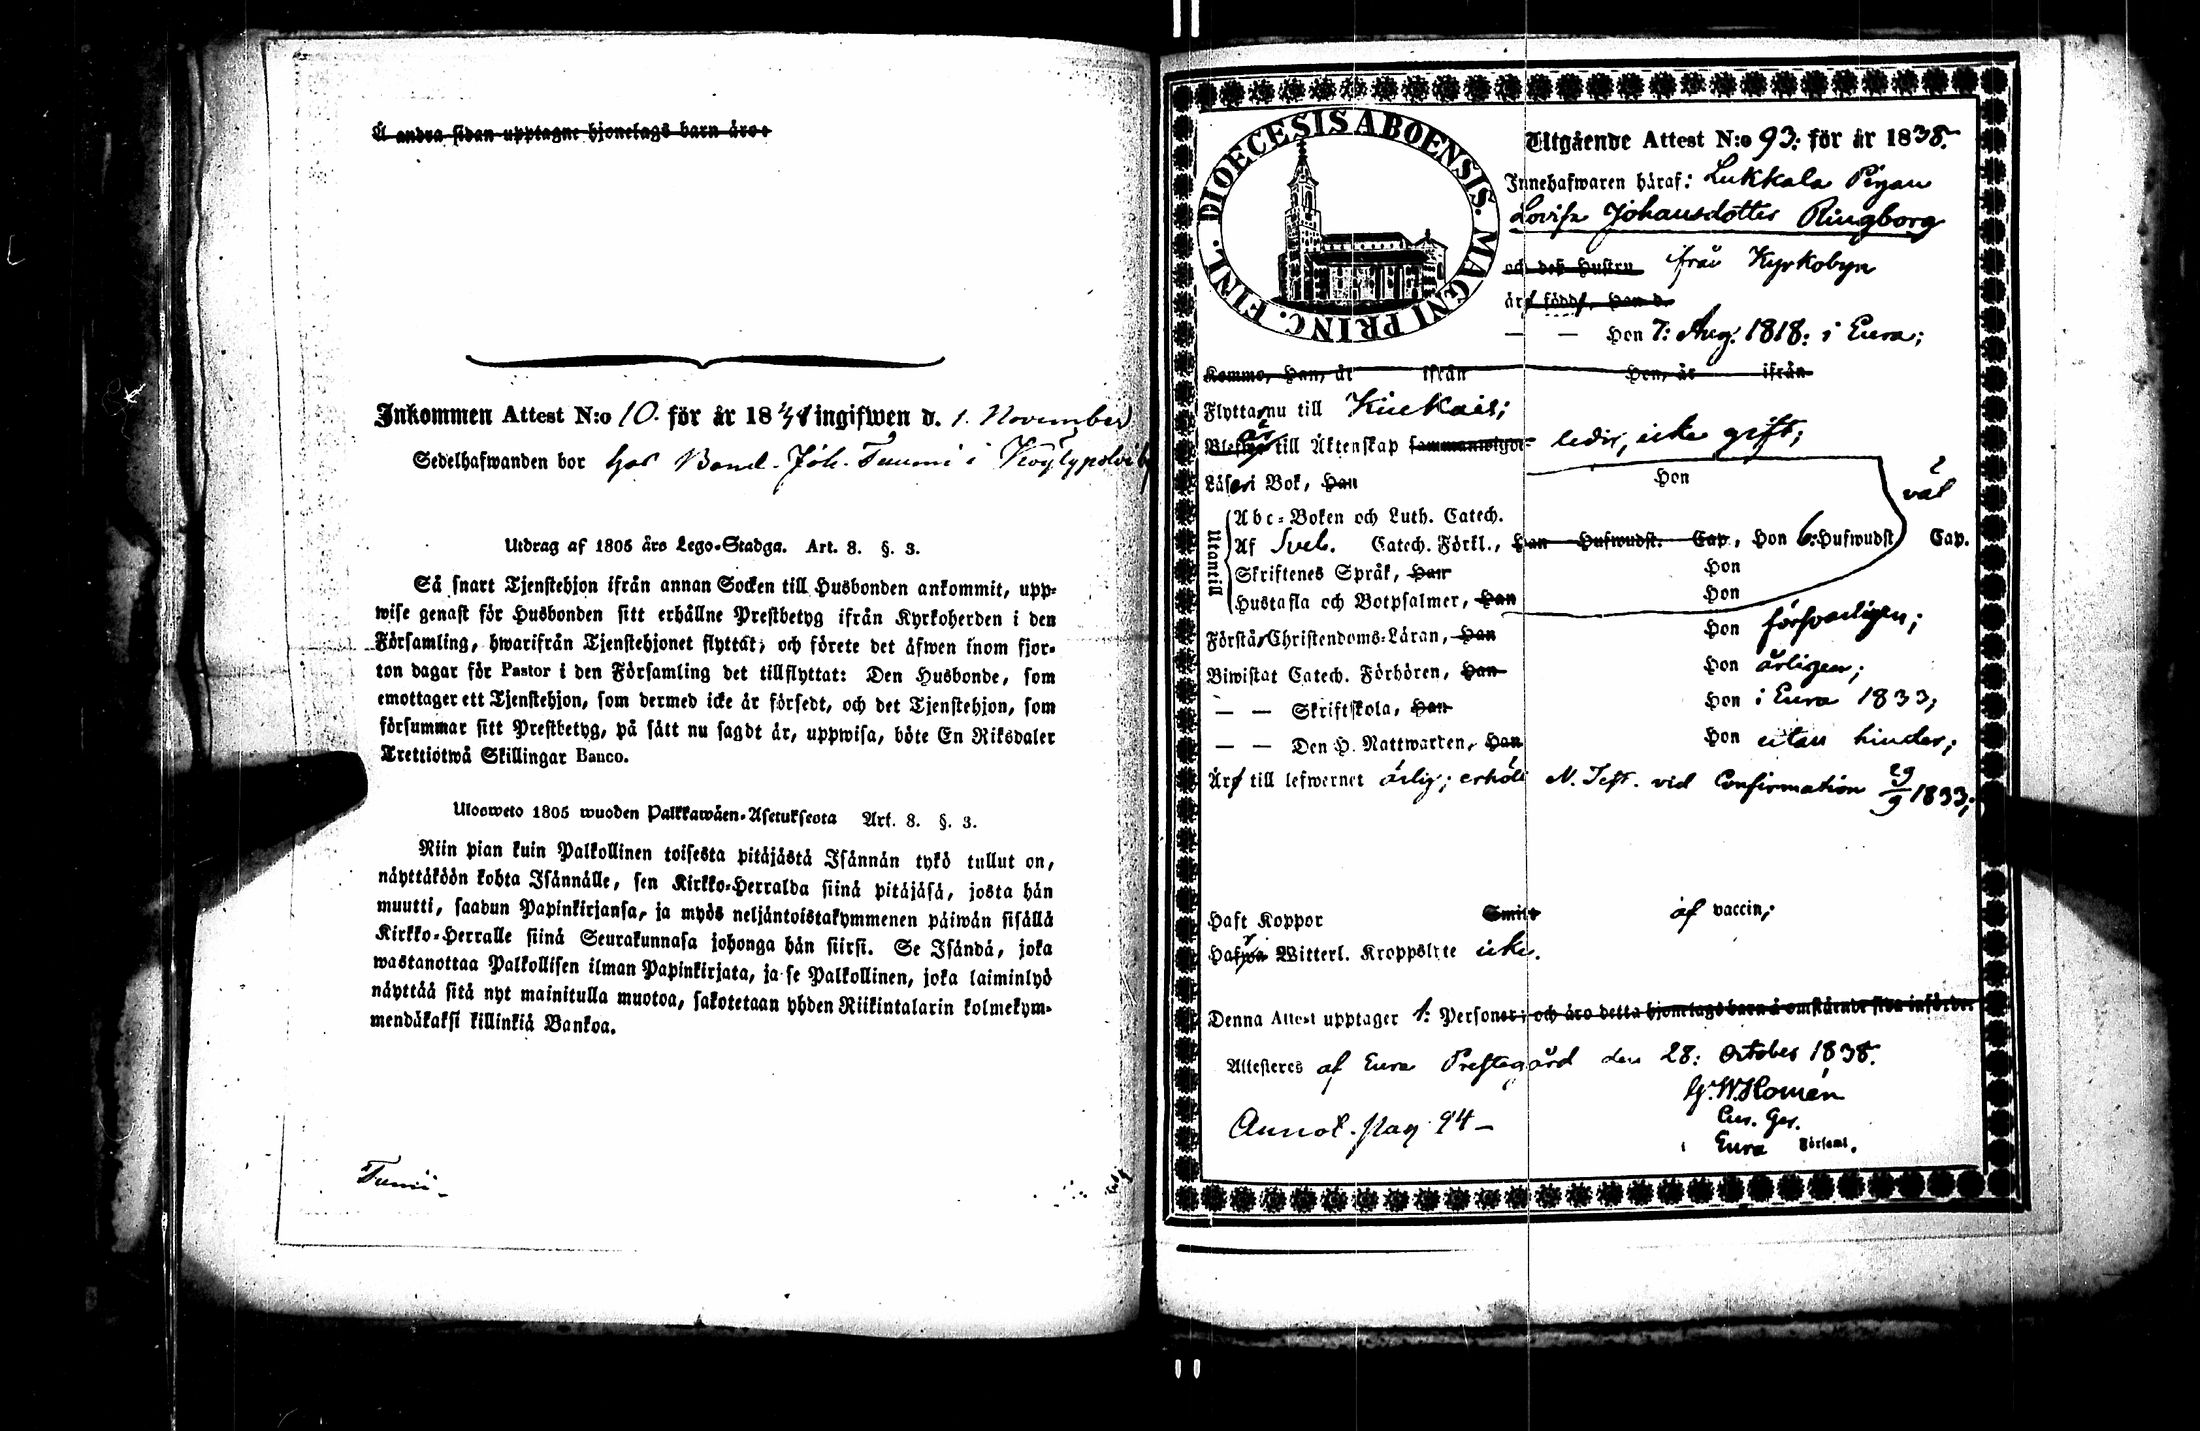 Å andra sidan upptagne hjonelags barn äro:
Inkommen Attest N:o 10. för år 18 ingifwen d. 1. November
Sedelhafwanden bor hos Bond. Joh. Tuumi i
Utdrag af 1805 års Lego-Stadga. Art. 8. §. 3.
Så snart Tjenstehjon ifrån annan Socken till Husbonden ankommit, upp-
wise genast för Husbonden sitt erhållne Prestbetyg ifrån Kyrkoherden i den
Församling, hwarifrån Tjenstehjonet flyttat; och förete det äfwen inom fjor-
ton dagar för Pastor i den Församling det tillflyttat: Den Husbonde, som
emottager ett Tjenstehjon, som dermed icke är försedt, och det Tjenstehjon, som
försummar sitt Prestbetyg, på sätt nu sagdt är, uppwisa, böte En Riksdaler
Trettiotwå Skillingar Banco.
Ulosweto 1805 wuoden Palkkawäen-Asetuksesta Art. 8. §. 3.
Niin pian kuin Palkollinen toisesta pitäjästä Isännän tykö tullut on,
näyttäköön kohta Isännälle, sen Kirkko-Herralda siinä pitäjäsä, josta hän
muutti, saadun Papinkirjansa, ja myös neljäntoistakymmenen päiwän sisällä
Kirkko-Herralle siinä Seurakunnasa johonga hän siirsi. Se Isändä, joka
wastanottaa Palkollisen ilman Papinkirjata, ja se Palkollinen, joka laiminlyö
näyttää sitä nyt mainitulla muotoa, sakotetaan yhden Riikintalarin kolmekym-
mendäkaksi killinkiä Bankoa.
DIOECESIS ABOENSIS. MAGNI PRINC. FINL.
Utgående Attest N:o 93: för år 1838.
Innehafwaren häraf: Lukkala Pigan
Lovisa Johansdotter Ringborg
och deß Hustru från Kyrkobyn
är född, Han d.
— — Hon 7: Aug. 1818: i Eura;
Komme, Han, är ifrån Hon, är ifrån
Flytta nu till Kiukais;
är till Äktenskap sammanwigde ledig, icke gift;
Läser i Bok, Han Hon
väl
Utantill
Abc-Boken och Luth. Catech.
Af Sveb. Catech. Förkl., Han Hufwudst. Cap, Hon 6: Hufwudst Cap.
Skriftenes Språk, Han Hon
Hustafla och Botpsalmer, Han Hon
Förstår Christendoms-Läran, Han Hon försvarligen;
Biwistat Catech. Förhören, Han Hon årligen;
— — Skriftskola, Han Hon i Eura 1833;
— — Den H. Nattwarden, Han Hon utan hinder;
Är till lefwernet ärlig; erhöll N. Test. vid Confirmation 29/9 1833;
Haft Koppor Smitt af vaccin;
Witterl. Kroppslyte icke.
Denna Attest upptager 1: Personer; och äro detta hjonelags barn å omstående sida införde
Attesteres af Eura Prestegård den 28: October 1838.
G. W. Homén
Cur. Ger.
i Eura Församl.
Annot. pag 94 —